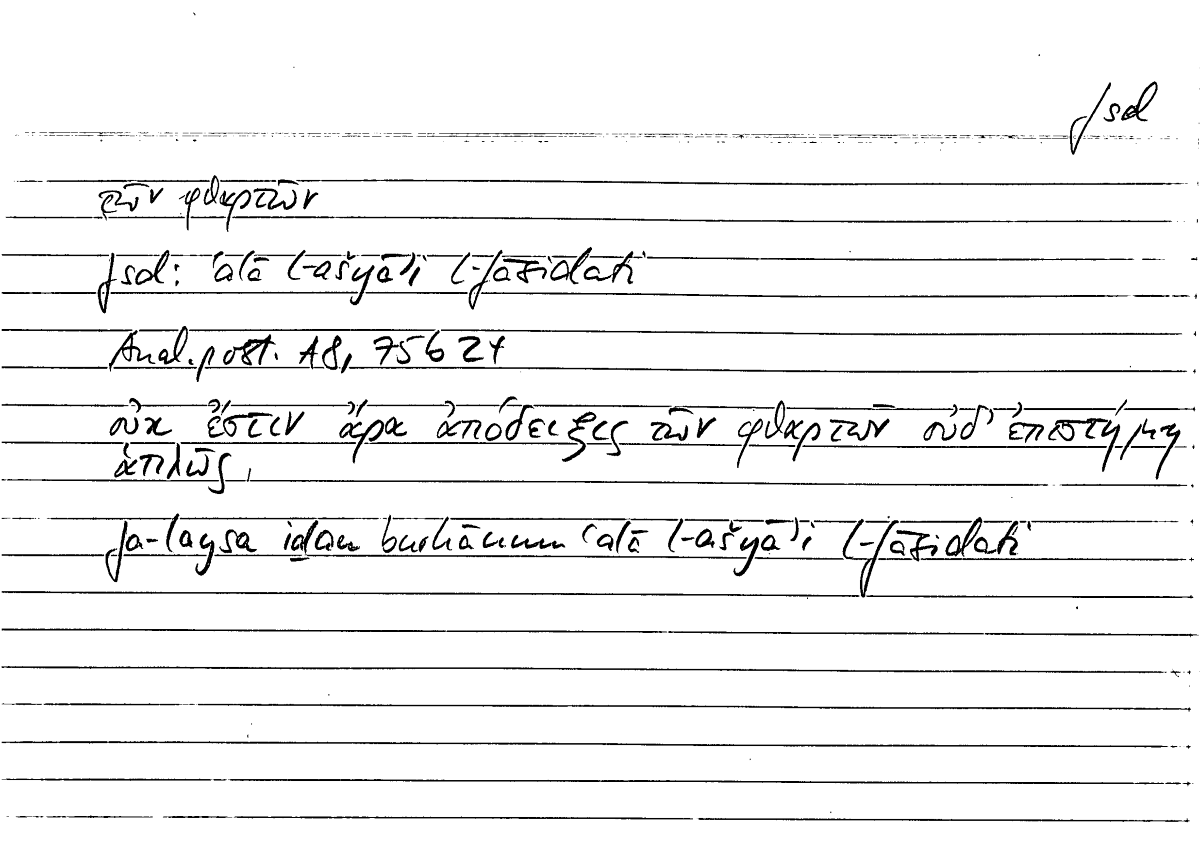 fsd
τῶν φθαρτῶν
fsd: ʿalā l-ašyāʾi l-fāsidati
Anal. post. A8, 75b24
οὐκ ἔστιν ἄρα ἀπόδειξις τῶν φθαρτῶν οὐδ' ἐπιστήμη
ἁπλῶς,
fa-laysa iḏan burhānun ʿalā l-ašyāʾi l-fāsidati